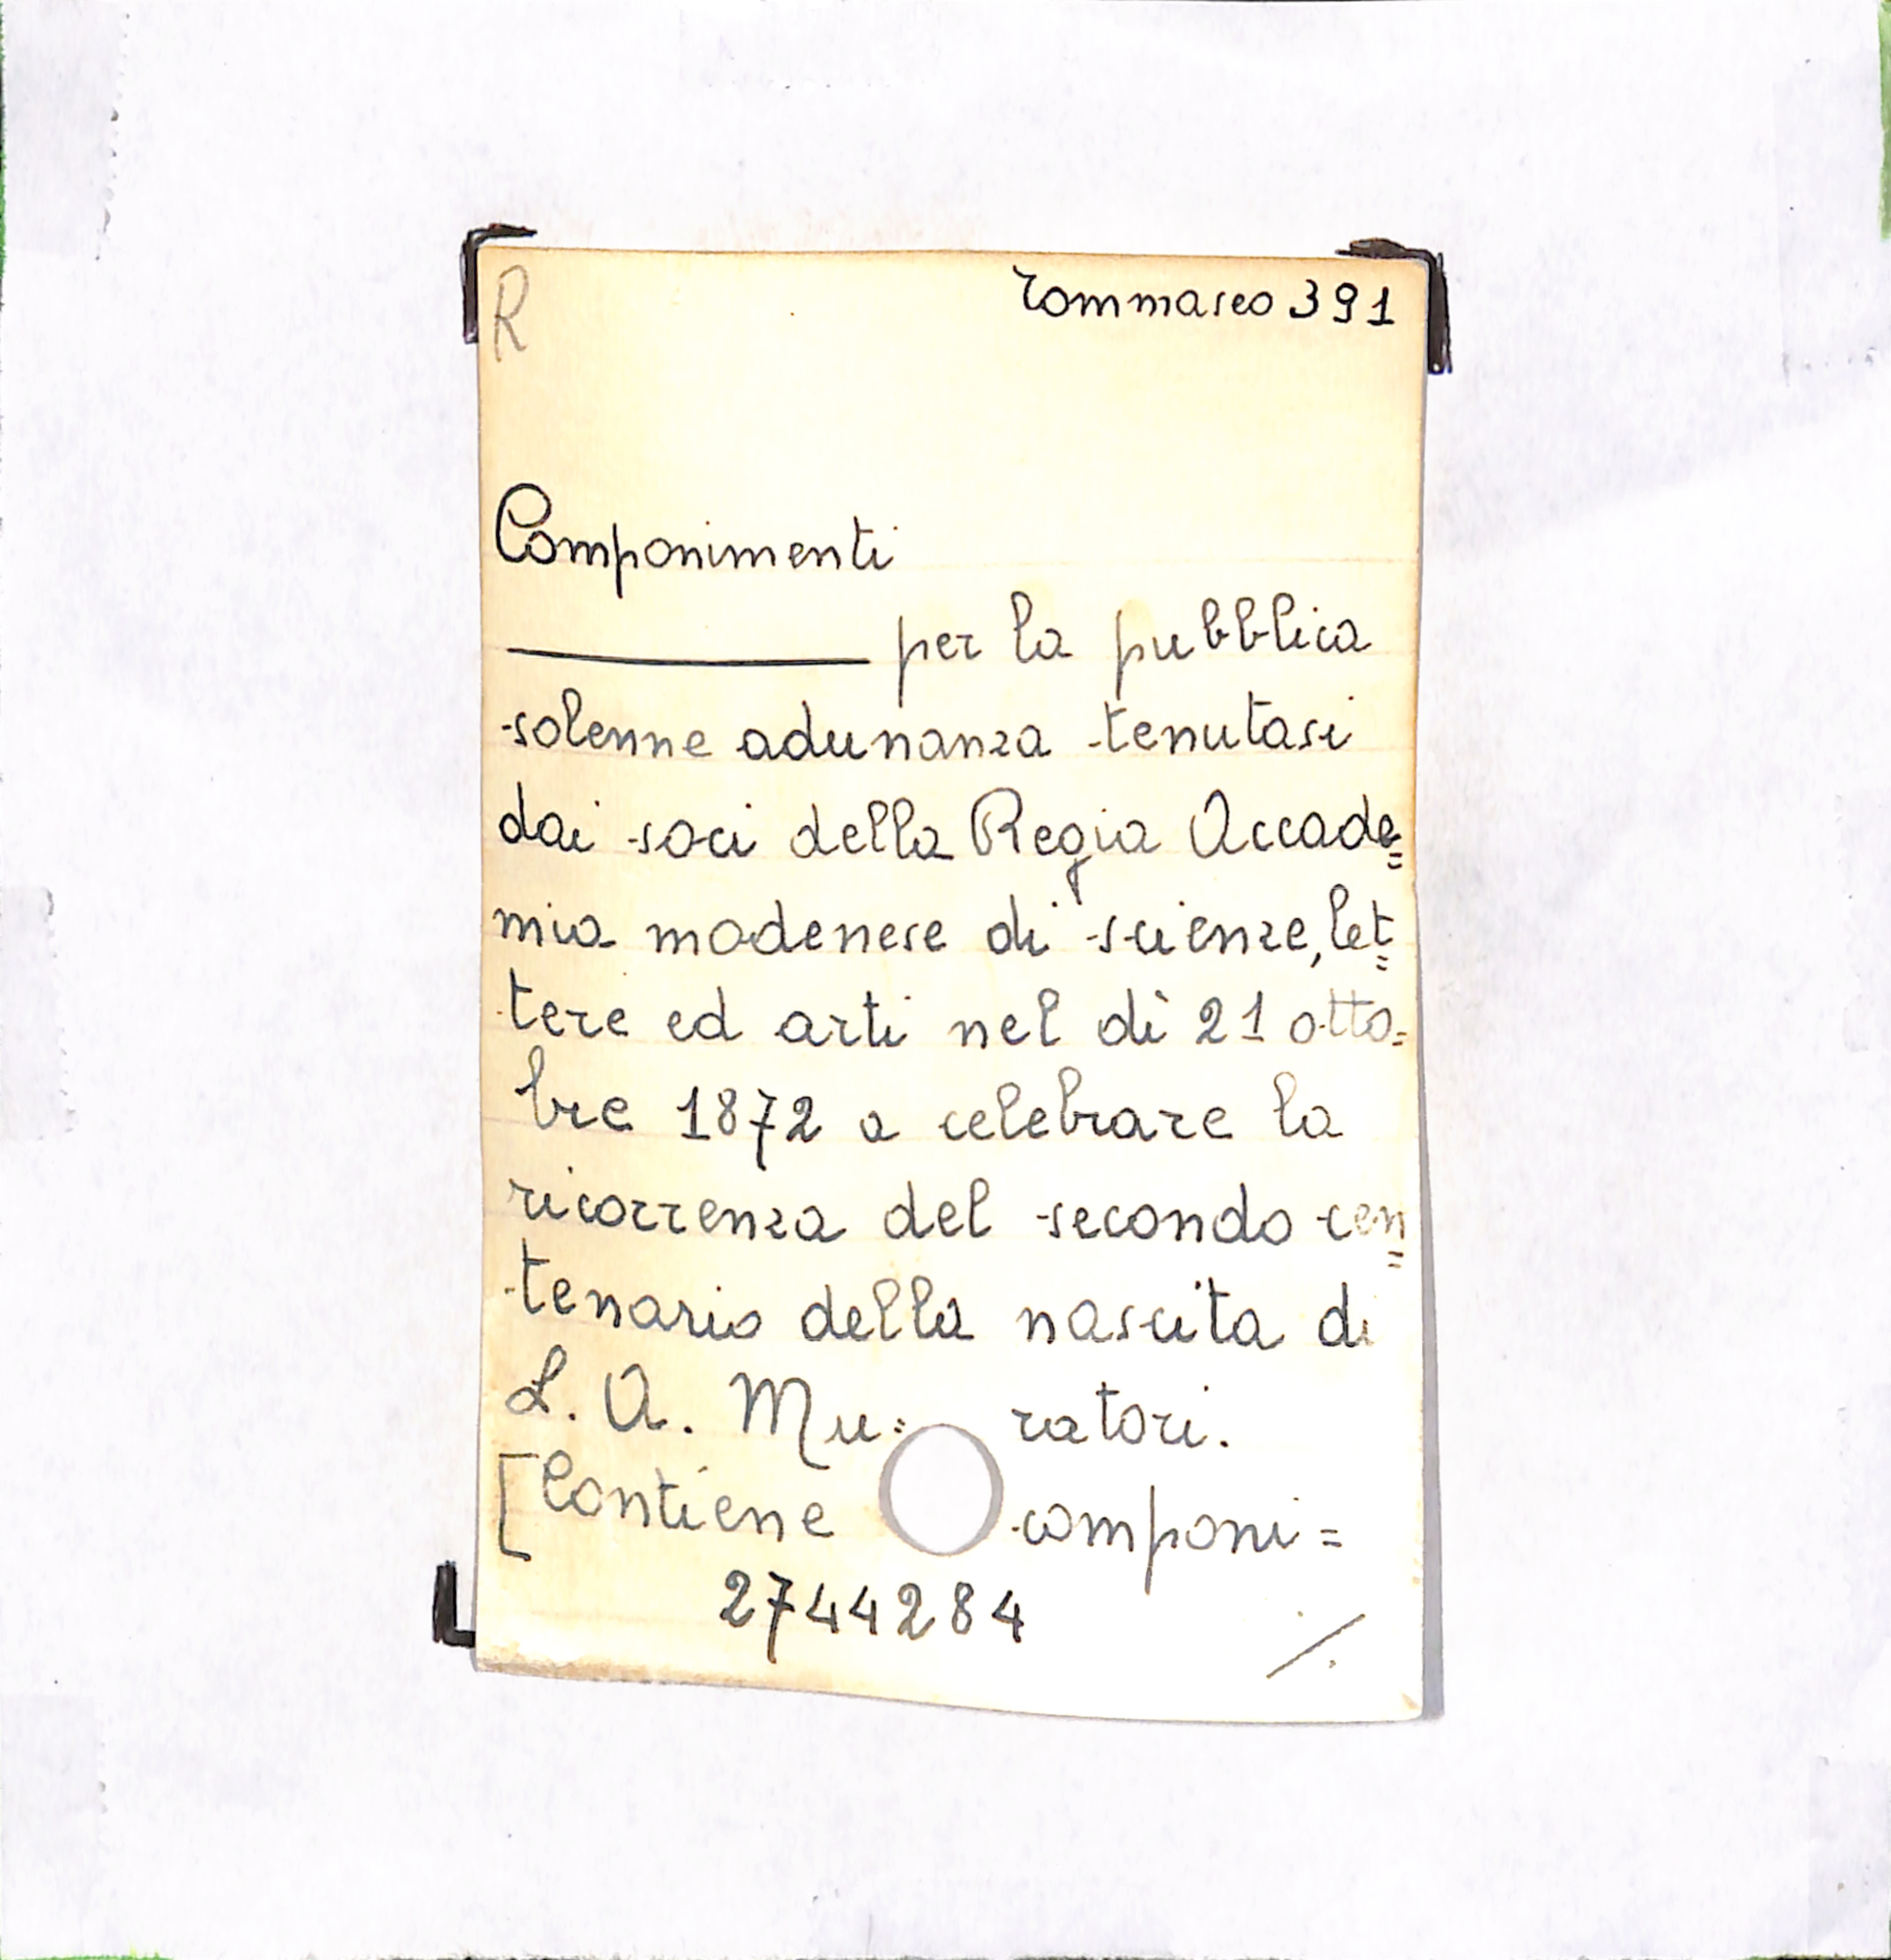 R
Tommaseo 391
Componimenti
per la pubblica
solenne adunanza tenutasi
dai soci della Regia Accade=
mia modenese di scienze, let=
tere ed arti nel dì 21 otto=
bre 1872 a celebrare la
ricorrenza del secondo cen=
tenario della nascita di
L. A. Mu= ratori.
[Contiene componi=
2744284
./.